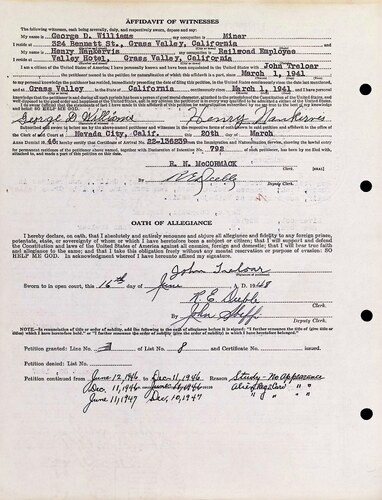 AFFIDAVIT OF WITNESSES
The following witnesses, each being severally, duly, and respectively sworn, depose and say:
My name is George D. Williams my occupation is Miner
I reside at 324 Bennett St., Grass Valley, California
My name is Henry Nankervis my occupation is Railroad Employee
I reside at Valley Hotel, Grass Valley, California
I am a citizen of the United States of America; I have personally known and have been acquainted in the United States with John Treloar
the petitioner named in the petition for naturalization of which this affidavit is a part, since March 1, 1941
to my personal knowledge the petitioner has resided, immediately preceding the date of filing this petition, in the United States continuously since the date last mentioned,
and at Grass Valley in the State of California continuously since March 1, 1941 and I personally
George D Williams Henry Nankervis
Subscribed and sworn to before me by the above-named petitioner and witnesses in the respective forms of oath shown in said petition and affidavit in the office of the
Clerk of said Court at Nevada City, Calif. this 20th day of March
No. 22-136239 from the Immigration and Naturalization Service, showing the lawful entry
for permanent residence of the petitioner above named, together with Declaration of Intention No. 792 of such petitioner, has been by me filed with,
attached to, and made a part of this petition on this date.
R. N. McCORMACK
Clerk. [SEAL]
By
Deputy Clerk.
OATH OF ALLEGIANCE
I hereby declare, on oath, that I absolutely and entirely renounce and abjure all allegiance and fidelity to any foreign prince,
potentate, state, or sovereignty of whom or which I have heretofore been a subject or citizen; that I will support and defend
the Constitution and laws of the United States of America against all enemies, foreign and domestic; that I will bear true faith
and allegiance to the same; and that I take this obligation freely without any mental reservation or purpose of evasion: SO
HELP ME GOD. In acknowledgment whereof I have hereunto affixed my signature.
John Treloar
Sworn to in open court, this 16th day of June A. D. 1948
R. E. Deeble
Clerk.
By John
Deputy Clerk.
NOTE.—In renunciation of title or order of nobility, add the following to the oath of allegiance before it is signed: "I further renounce the title of (give title or
titles) which I have heretofore held," or "I further renounce the order of nobility (give the order of nobility) to which I have heretofore belonged."
Petition granted: Line No. 3 of List No. 8 and Certificate No. issued.
Petition denied: List No.
Petition continued from June 12, 1946 to Dec. 11, 1946 Reason Study - No Appearance
Dec. 11, 1946
June 11, 1947 Dec. 10, 1947 " " "